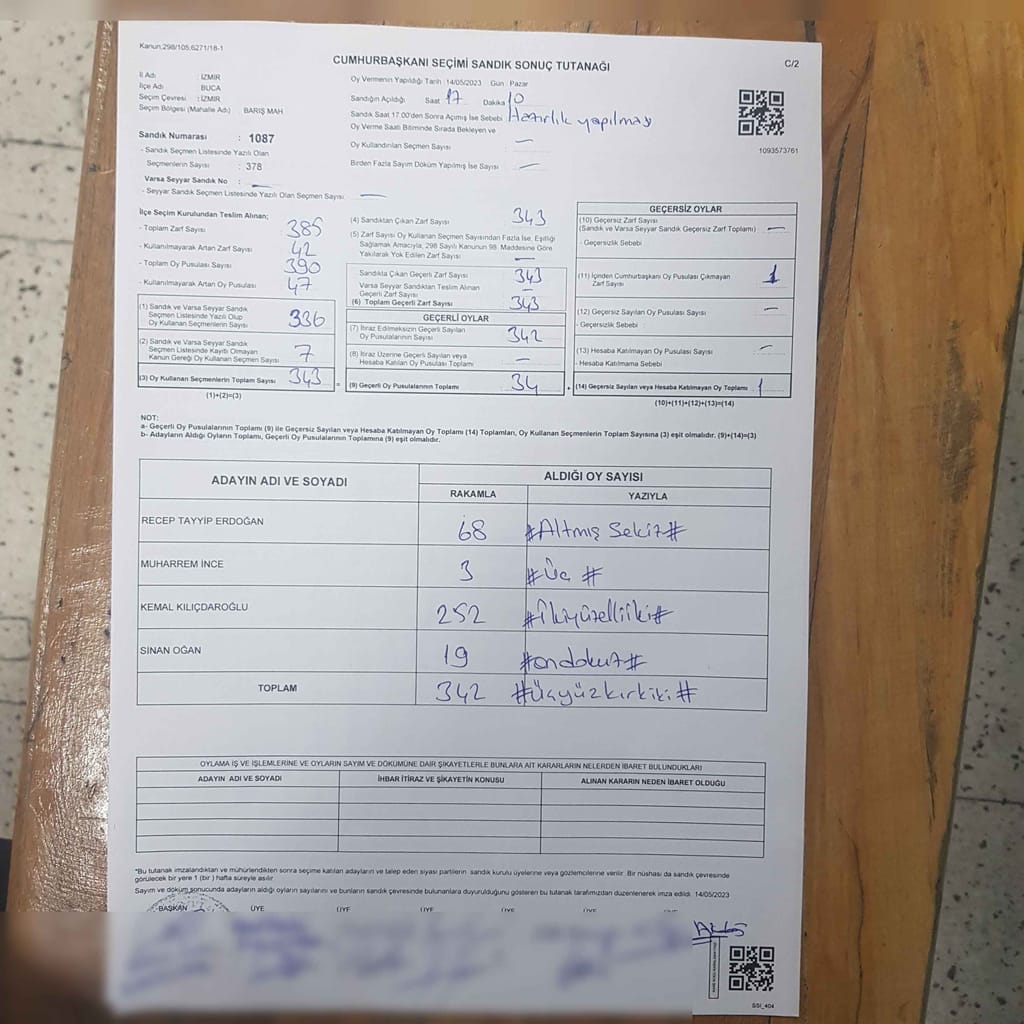 Kanun:298/105,6271/18-1
CUMHURBAŞKANI SEÇİMİ SANDIK SONUÇ TUTANAĞI
C/2
İl Adı : İZMİR
İlçe Adı : BUCA
Seçim Çevresi : İZMİR
Seçim Bölgesi (Mahalle Adı) : BARIŞ MAH
Oy Vermenin Yapıldığı Tarih :14/05/2023 Gün : Pazar
Sandığın Açıldığı Saat 17 Dakika 10
Sandık Saat 17.00'den Sonra Açımış İse Sebebi Hazırlık yapılması
Oy Verme Saati Bitiminde Sırada Bekleyen ve
Oy Kullandırılan Seçmen Sayısı —
Birden Fazla Sayım Döküm Yapılmış İse Sayısı —
1093573761
Sandık Numarası : 1087
- Sandık Seçmen Listesinde Yazılı Olan
Seçmenlerin Sayısı : 378
Varsa Seyyar Sandık No : —
- Seyyar Sandık Seçmen Listesinde Yazılı Olan Seçmen Sayısı : —
İlçe Seçim Kurulundan Teslim Alınan;
- Toplam Zarf Sayısı 385
- Kullanılmayarak Artan Zarf Sayısı 42
- Toplam Oy Pusulası Sayısı 390
- Kullanılmayarak Artan Oy Pusulası 47
(1) Sandık ve Varsa Seyyar Sandık
Seçmen Listesinde Yazılı Olup
Oy Kullanan Seçmenlerin Sayısı 336
(2) Sandık ve Varsa Seyyar Sandık
Seçmen Listesinde Kayıtlı Olmayan
Kanun Gereği Oy Kullanan Seçmen Sayısı 7
(3) Oy Kullanan Seçmenlerin Toplam Sayısı 343 =
(1)+(2)=(3)
(4) Sandıktan Çıkan Zarf Sayısı 343
(5) Zarf Sayısı Oy Kullanan Seçmen Sayısından Fazla İse, Eşitliği
Sağlamak Amacıyla, 298 Sayılı Kanunun 98. Maddesine Göre
Yakılarak Yok Edilen Zarf Sayısı —
Sandıkta Çıkan Geçerli Zarf Sayısı 343
Varsa Seyyar Sandıktan Teslim Alınan
Geçerli Zarf Sayısı —
(6) Toplam Geçerli Zarf Sayısı 343
GEÇERLİ OYLAR
(7) İtiraz Edilmeksizin Geçerli Sayılan
Oy Pusulalarının Sayısı 342
(8) İtiraz Üzerine Geçerli Sayılan veya
Hesaba Katılan Oy Pusulası Toplamı —
(9) Geçerli Oy Pusulalarının Toplamı 34 +
GEÇERSİZ OYLAR
(10) Geçersiz Zarf Sayısı
(Sandık ve Varsa Seyyar Sandık Geçersiz Zarf Toplamı) —
- Geçersizlik Sebebi
(11) İçinden Cumhurbaşkanı Oy Pusulası Çıkmayan
Zarf Sayısı 1
(12) Geçersiz Sayılan Oy Pusulası Sayısı —
- Geçersizlik Sebebi
(13) Hesaba Katılmayan Oy Pusulası Sayısı —
- Hesaba Katılmama Sebebi
(14) Geçersiz Sayılan veya Hesaba Katılmayan Oy Toplamı 1
(10)+(11)+(12)+(13)=(14)
NOT:
a- Geçerli Oy Pusulalarının Toplamı (9) ile Geçersiz Sayılan veya Hesaba Katılmayan Oy Toplamı (14) Toplamları, Oy Kullanan Seçmenlerin Toplam Sayısına (3) eşit olmalıdır. (9)+(14)=(3)
b- Adayların Aldığı Oyların Toplamı, Geçerli Oy Pusulalarının Toplamına (9) eşit olmalıdır.
ADAYIN ADI VE SOYADI
ALDIĞI OY SAYISI
RAKAMLA YAZIYLA
RECEP TAYYİP ERDOĞAN 68 #Altmış Sekiz#
MUHARREM İNCE 3 #Üç #
KEMAL KILIÇDAROĞLU 252 #İkiyüzelliiki#
SİNAN OĞAN 19 #ondokuz#
TOPLAM 342 #Üçyüzkırkiki#
OYLAMA İŞ VE İŞLEMLERİNE VE OYLARIN SAYIM VE DÖKÜMÜNE DAİR ŞİKAYETLERLE BUNLARA AİT KARARLARIN NELERDEN İBARET BULUNDUKLARI
ADAYIN ADI VE SOYADI İHBAR İTİRAZ VE ŞİKAYETİN KONUSU ALINAN KARARIN NEDEN İBARET OLDUĞU
*Bu tutanak imzalandıktan ve mühürlendikten sonra seçime katılan adayların ve talep eden siyasi partilerin sandık kurulu üyelerine veya gözlemcilerine verilir. Bir nüshası da sandık çevresinde
görülecek bir yere 1 (bir ) hafta süreyle asılır.
Sayım ve döküm sonucunda adayların aldığı oyların sayılarını ve bunların sandık çevresinde bulunanlara duyurulduğunu gösteren bu tutanak tarafımızdan düzenlenerek imza edildi. 14/05/2023
BAŞKAN ÜYE ÜYE ÜYE ÜYE ÜYE ÜYE
SSI_404